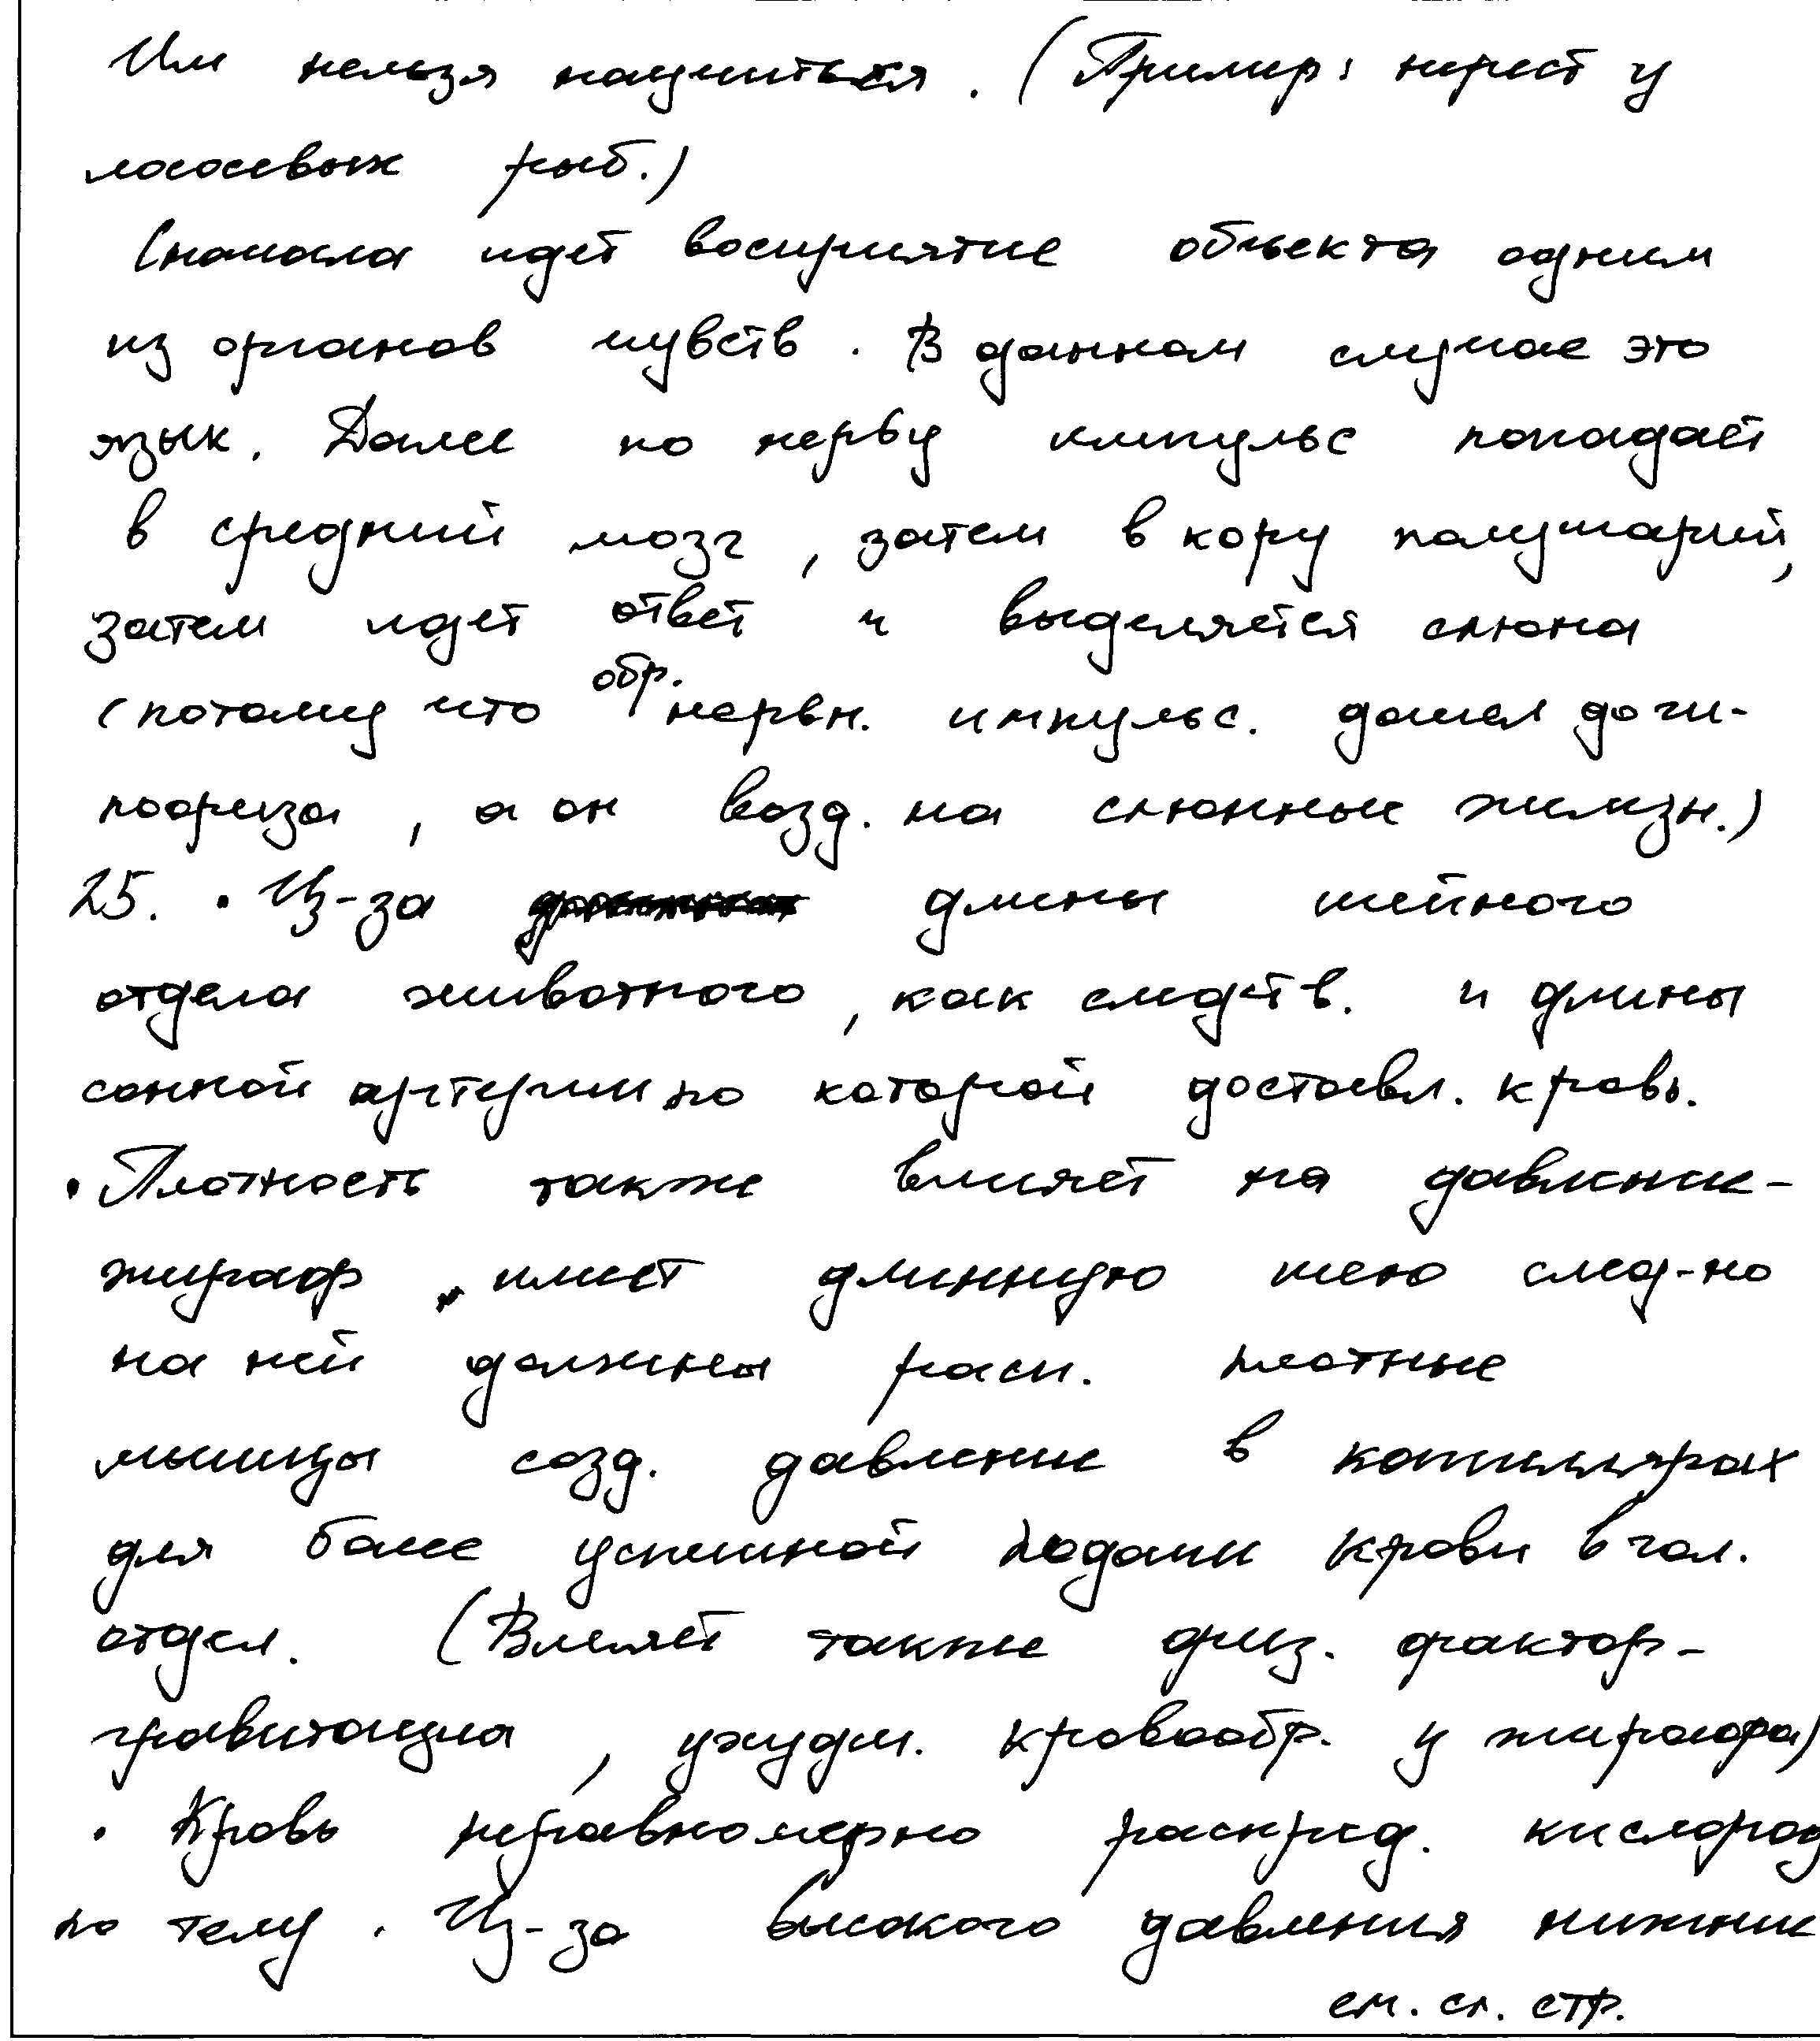 Им нельзя научиться. (Пример: нерест у
лососевых рыб.)
Сначала идет восприятие объекта одним
из органов чувств. В данном случае это
язык. Далее по нерву импульс попадает
в средний мозг, затем в кору полушарий,
затем идет ответ и выделяется слюна
(потому что обр. нервн. импульс. дошел до ги-
пофиза, а он возд. на слюнные желизн.)
25. • Из-за длины шейного
отдела животного, как следств. и длины
сонной артерии по которой доставл. кровь.
• Плотность также влияет на давление-
жираф имеет длинную шею след-но
на ней должны расп. плотные
мышцы созд. давление в капиллярах
для более успешной подачи крови в гол.
отдел. (Влияет также физ. фактор-
гравитация, ухудш. кровообр. у жирафа)
• Кровь неравномерно распред. кислород
по телу. Из-за высокого давления нижние
см. сл. стр.